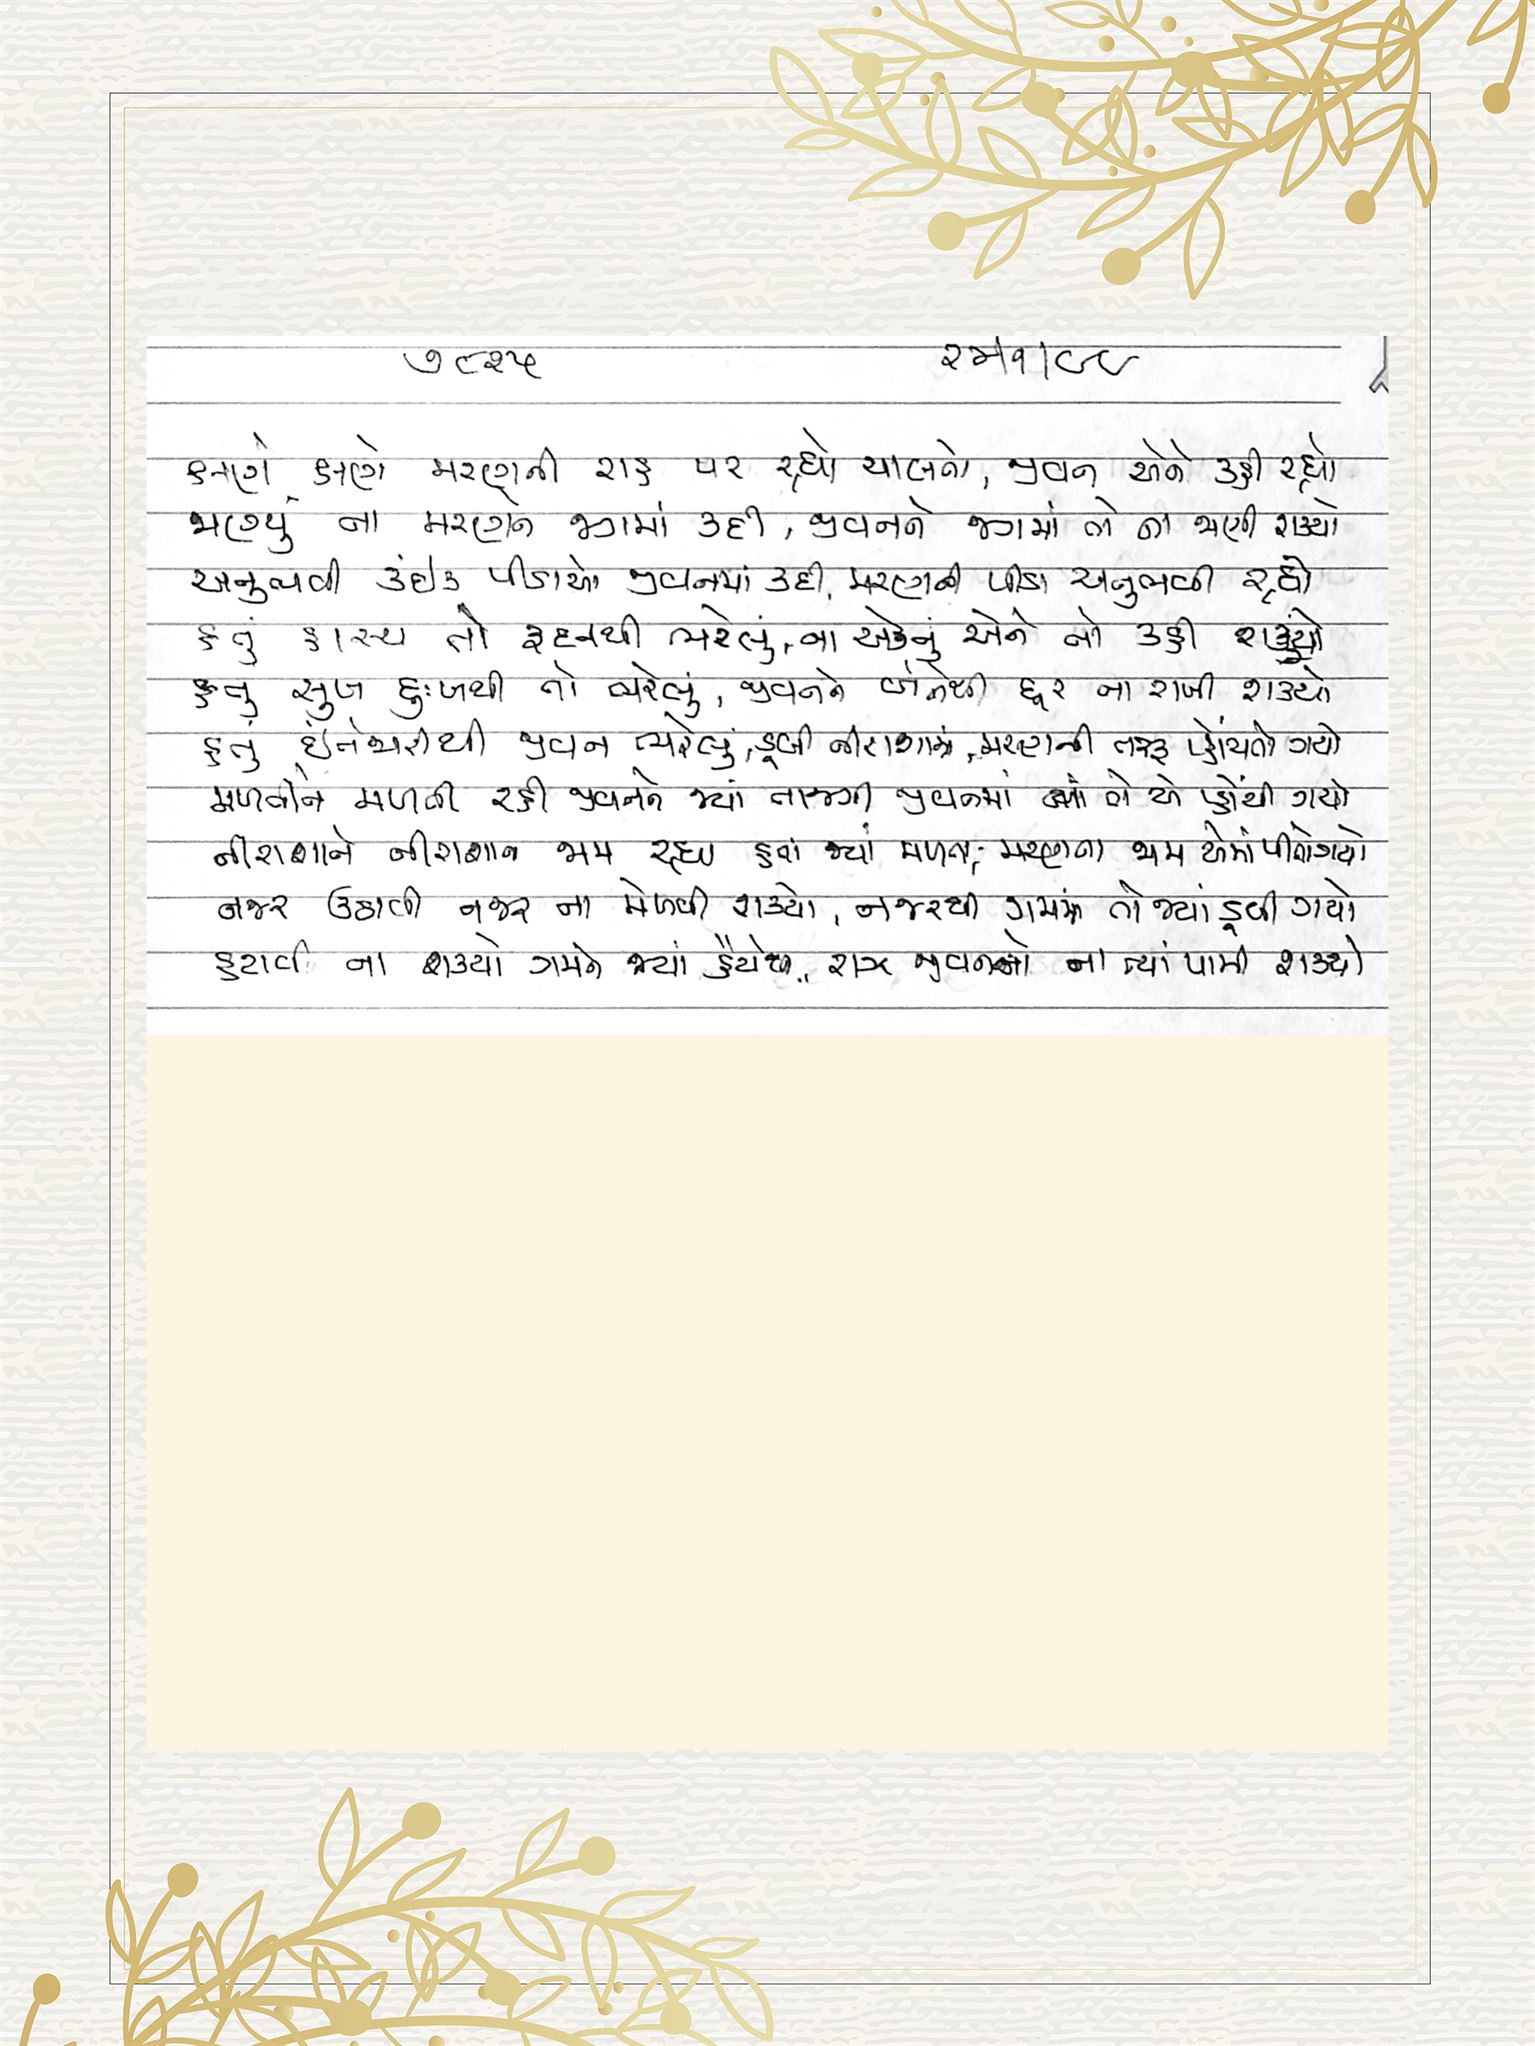 ૭૮૨૫ ૨૫|૧|૯૯
ક્ષણે ક્ષણે મરણની રાહ પર રહ્યો ચાલતો, જીવન એને કહી રહ્યો
જાણ્યું ના મરણને જગમાં કદી, જીવનને જગમાં તો ના જાણી શક્યો
અનુભવી કંઈક પીડાઓ જીવનમાં કદી, મરણની પીડા અનુભવી રહ્યો
હતું હાસ્ય તો રૂદનથી ભરેલું, ના એકનું એને તો કહી શક્યો
હતું સુખ દુઃખથી તો ભરેલું, જીવનને બંનેથી દૂર ના રાખી શક્યો
હતું ઇંતેજારીથી જીવન ભરેલું, ડૂબી નીરાશામાં, મરણની તરફ પ્હોંચતો ગયો
મળતીને મળતી રહી જીવનને જ્યાં તાજગી જીવનમાં તો એ પ્હોંચી ગયો
નીરાશાને નીરાશાના જામ રહ્યા હતા જ્યાં મળતા, મરણના જામ એમાં પીતો ગયો
નજર ઉઠાવી નજર ના મેળવી શક્યો, નજરથી ગમમાં તો જ્યાં ડૂબી ગયો
હટાવી ના શક્યો ગમને જ્યાં હૈયેથી, રાઝ જીવનનો ના ત્યાં પામી શક્યો